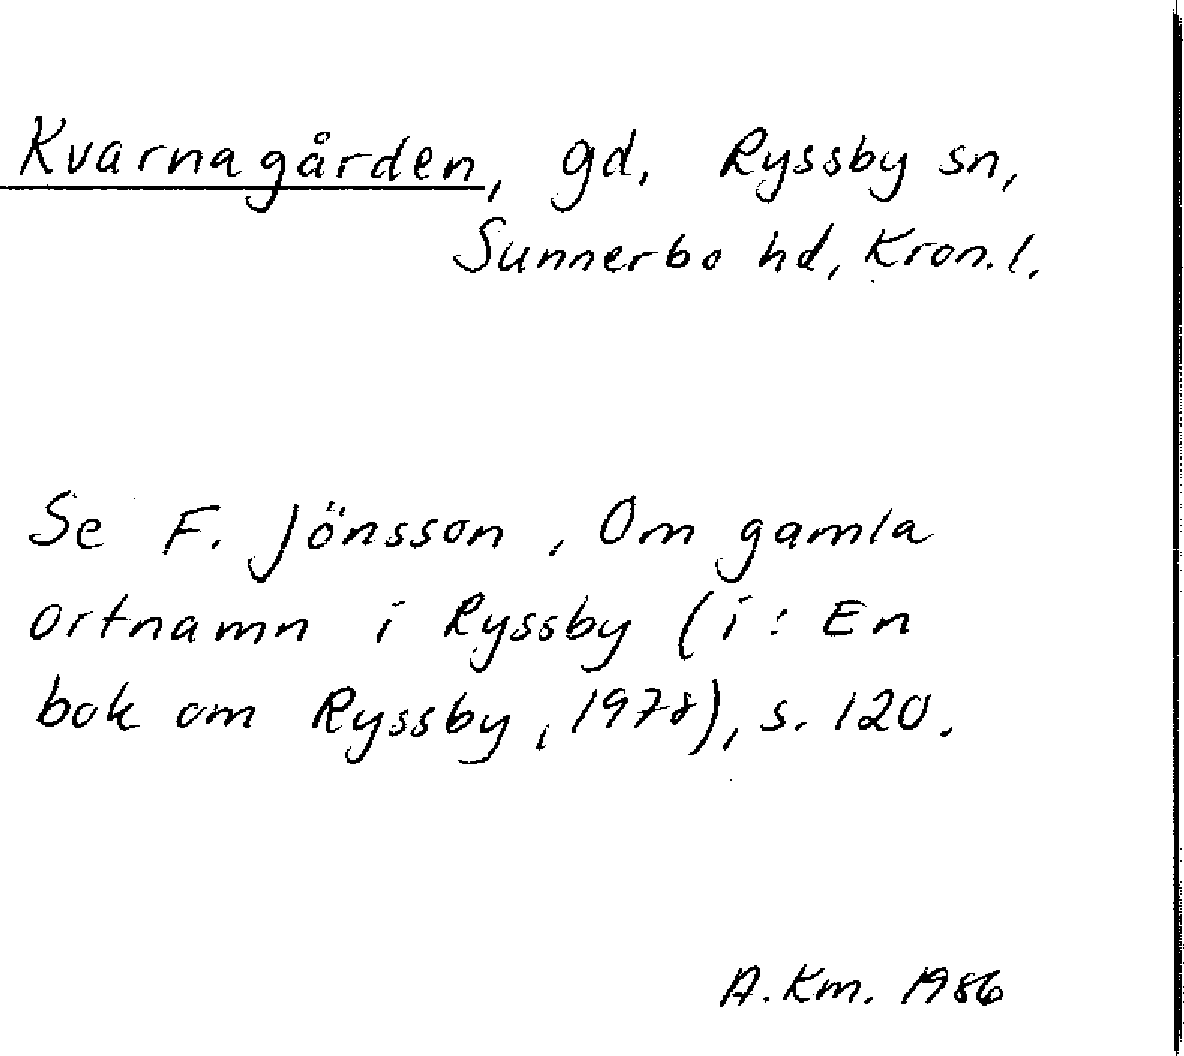 Kvarnagården, gd, Ryssby sn,
Sunnerbo hd, Kron. l.
Se F. Jönsson, Om gamla
ortnamn i Ryssby (i: En
bok om Ryssby, 1978), s. 120.
A. Km. 1986